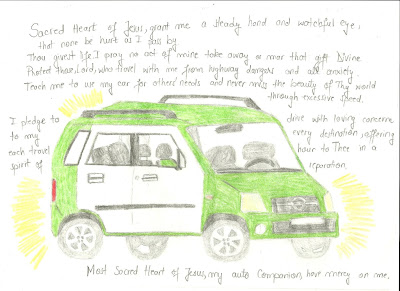 Sacred Heart of Jesus, grant me a steady hand and watchful eye,
that none be hurt as I pass by
Thou gavest life I pray no act of mine take away or mar that gift Divine
Protect those, Lord, who travel with me from highway dangers and all anxiety.
Teach me to use my car for others' needs and never miss the beauty of Thy world
through excessive speed.
I pledge to drive with loving concern
to my every destination, offering
each travel hour to Thee in a
spirit of reparation.
Most Sacred Heart of Jesus, my auto Companion, have mercy on me.